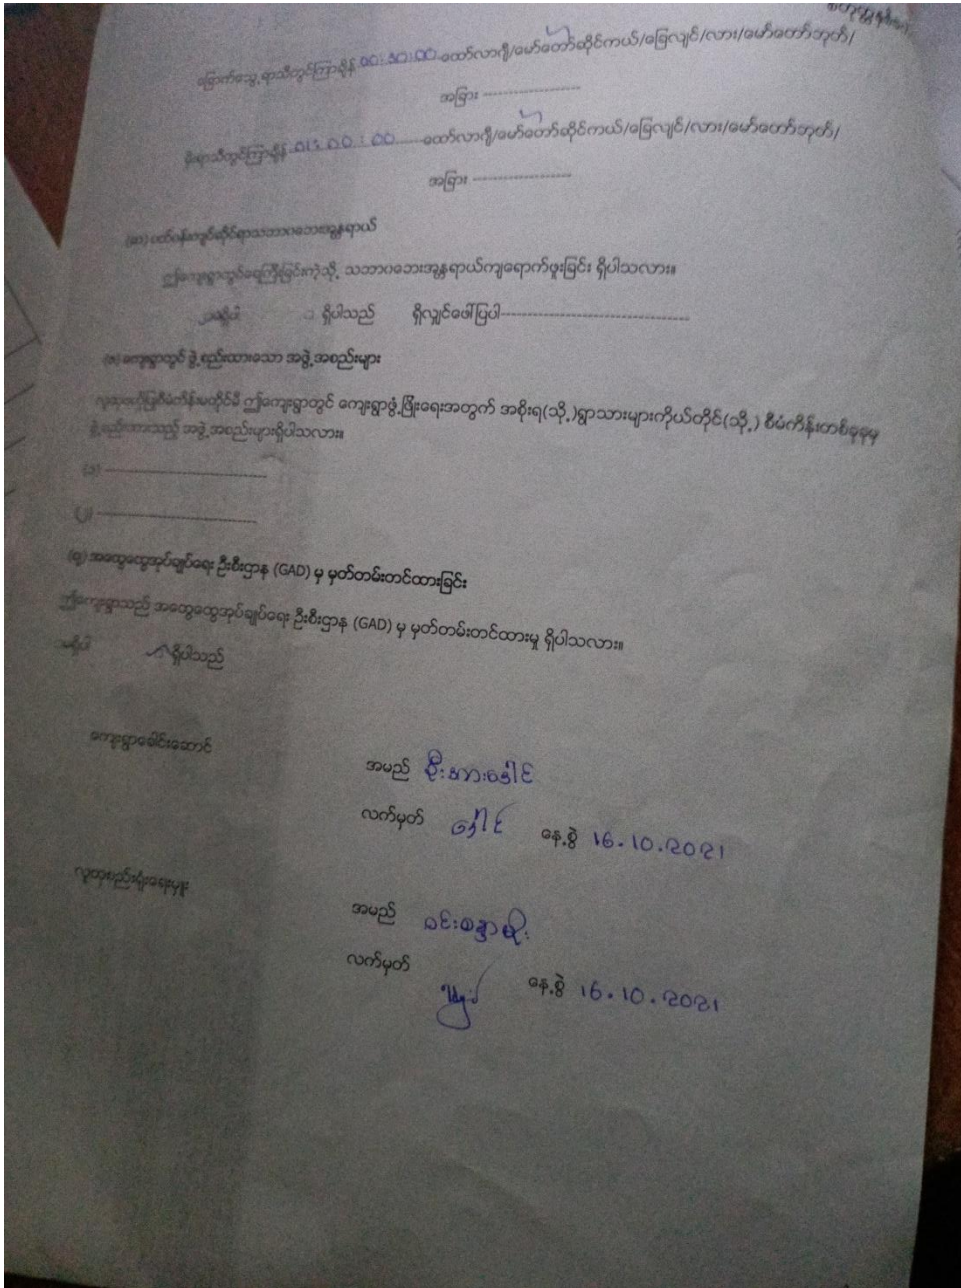 ခြောက်သွေ့ရာသီတွင်ကြာချိန် 00:30:00 ထော်လာဂျီ/မော်တော်ဆိုင်ကယ်/ခြေလျင်/လား/မော်တော်ဘုတ်/
အခြား -------------------
မိုးရာသီတွင်ကြာချိန် 01:00:00 ထော်လာဂျီ/မော်တော်ဆိုင်ကယ်/ခြေလျင်/လား/မော်တော်ဘုတ်/
အခြား -------------------
(ဆ) ပတ်ဝန်းကျင်ဆိုင်ရာသဘာဝဘေးအန္တရာယ်
ဤကျေးရွာတွင်ရေကြီးခြင်းကဲ့သို့ သဘာဝဘေးအန္တရာယ်ကျရောက်ဖူးခြင်း ရှိပါသလား။
မရှိပါ ရှိပါသည် ရှိလျှင်ဖေါ်ပြပါ-----------------------------------
(ဇ) ကျေးရွာတွင် ဖွဲ့စည်းထားသော အဖွဲ့အစည်းများ
လူထုဗဟိုပြုစီမံကိန်းမတိုင်မီ ဤကျေးရွာတွင် ကျေးရွာဖွံ့ဖြိုးရေးအတွက် အစိုးရ(သို့)ရွာသားများကိုယ်တိုင်(သို့) စီမံကိန်းတစ်ခုခုမှ
ဖွဲ့စည်းထားသည့် အဖွဲ့အစည်းများရှိပါသလား။
(၁) -----------------------------
(၂) -----------------------------
(ဈ) အထွေထွေအုပ်ချုပ်ရေး ဦးစီးဌာန (GAD) မှ မှတ်တမ်းတင်ထားခြင်း
ဤကျေးရွာသည် အထွေထွေအုပ်ချုပ်ရေး ဦးစီးဌာန (GAD) မှ မှတ်တမ်းတင်ထားမှု ရှိပါသလား။
မရှိပါ ရှိပါသည်
ကျေးရွာခေါင်းဆောင်
အမည် ဦးအားခေါင်
လက်မှတ် ခေါင် နေ့စွဲ 16.10.2021
လူထုစည်းရုံးရေးမှူး
အမည် ခင်းစန္ဒာမိုး
လက်မှတ် နေ့စွဲ 16.10.2021